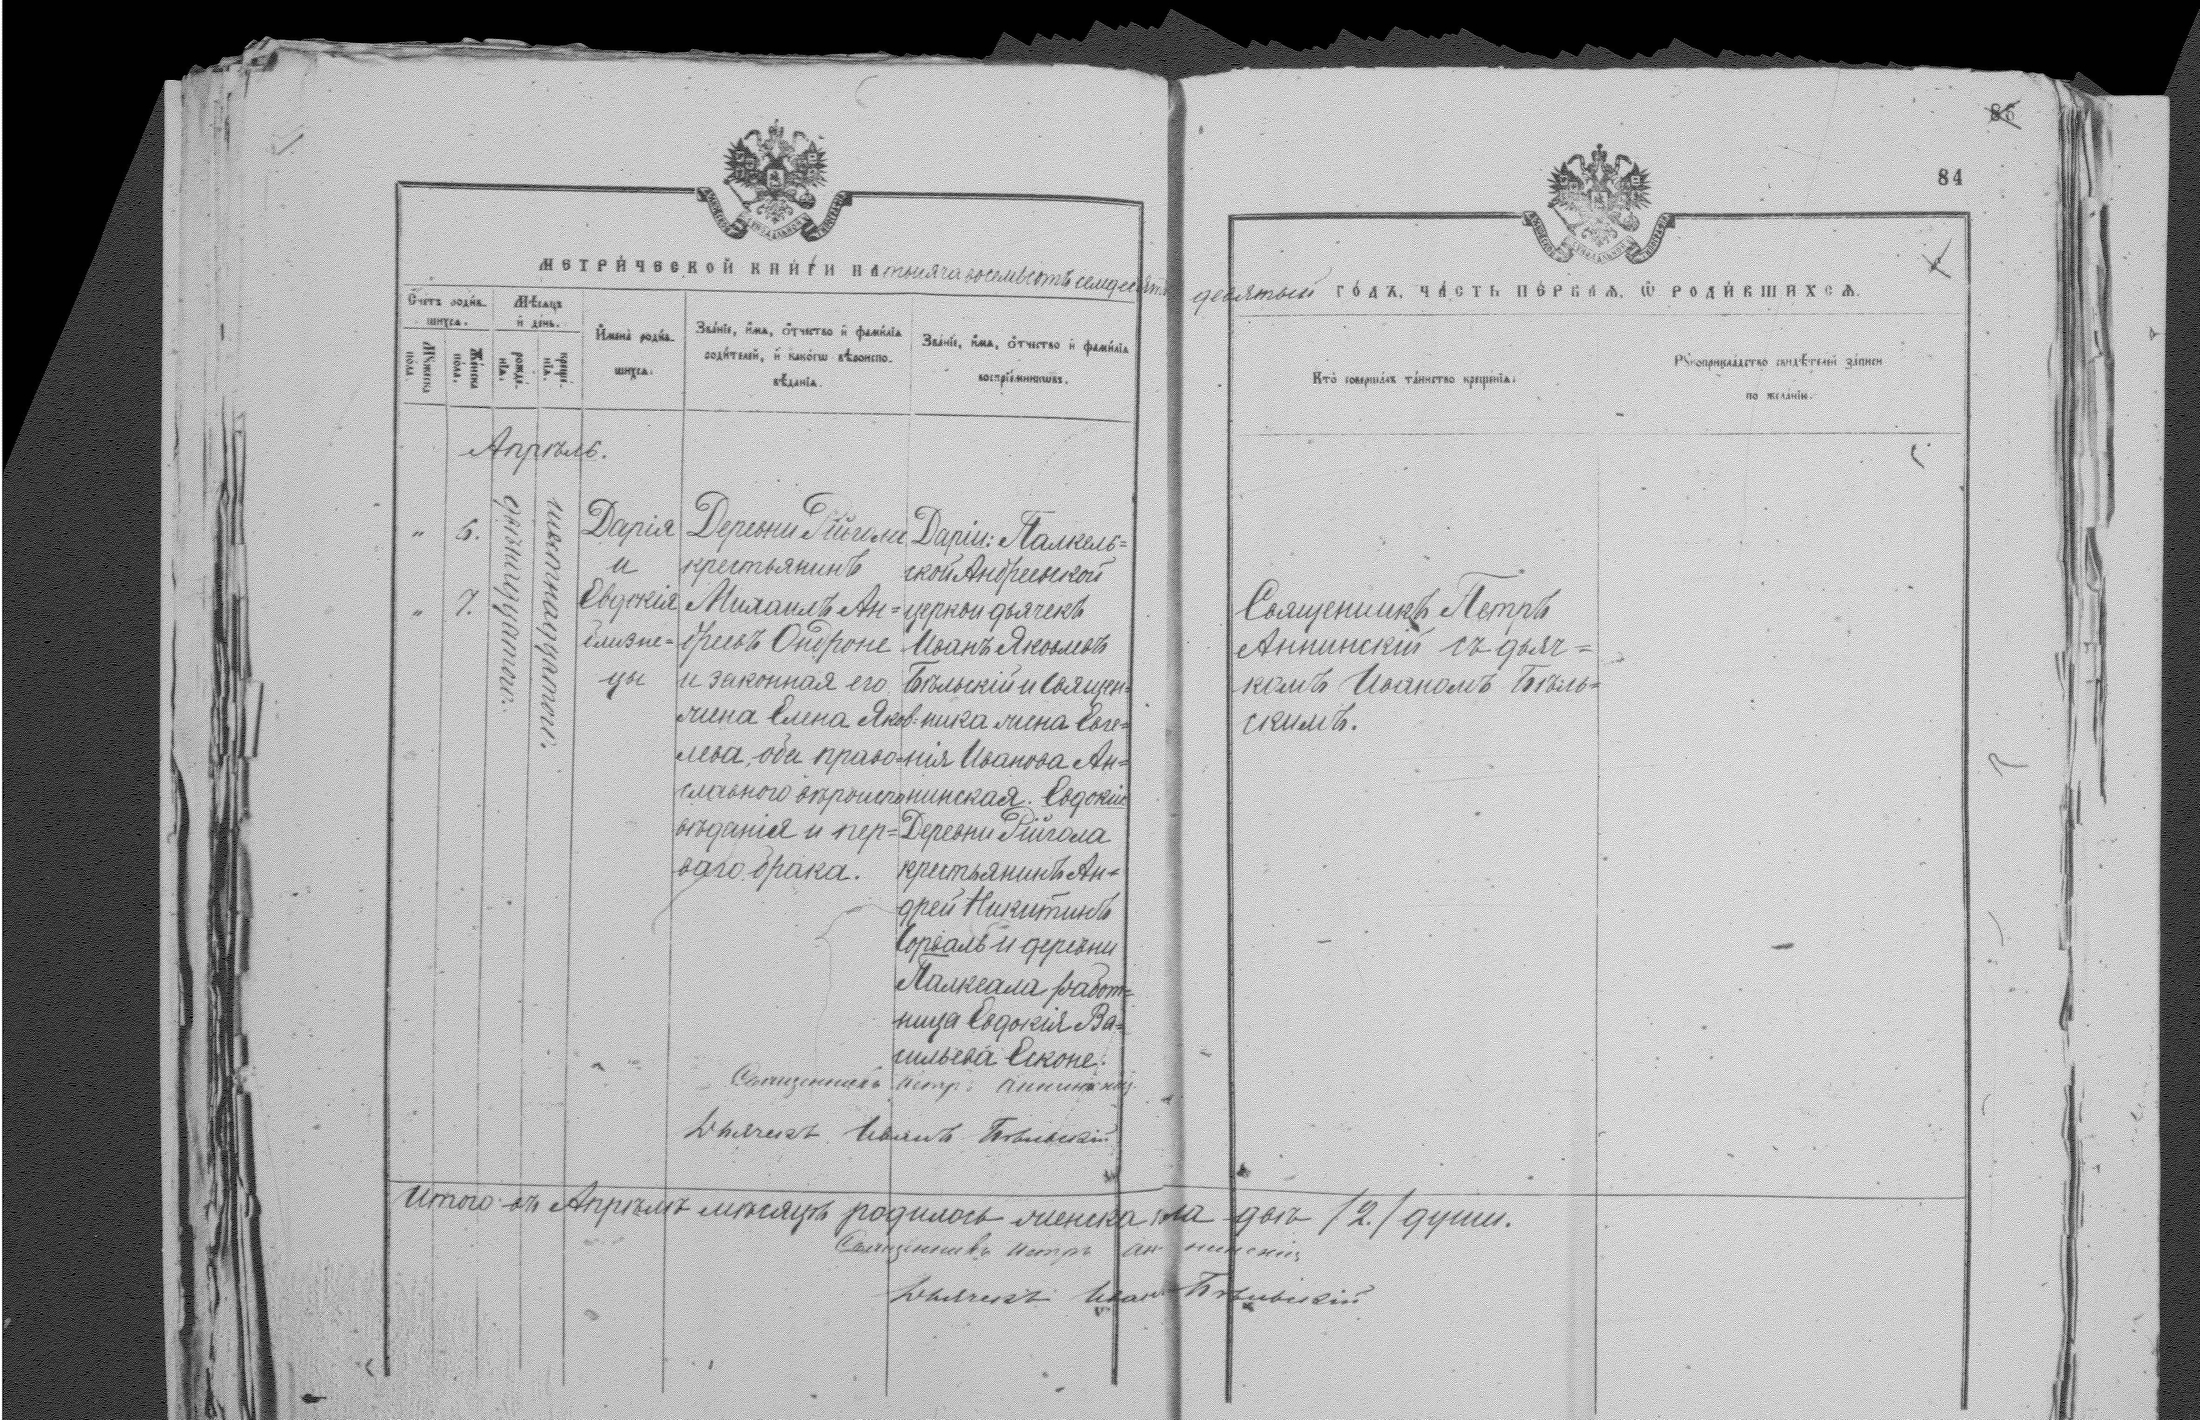 86
84
МЕТРИЧЕСКОЙ КНИГИ НА тысяча восемьсотъ семьдесятъ девятый ГОДЪ, ЧАСТЬ ПЕРВАЯ, Ѡ РОДИВШИХСЯ.
Счетъ родив-
шихся.
Мѣсяцъ
и день.
Имена родив-
шихся.
Званіе, имя, отчество и фамилія
родителей, и какогѡ вѣроиспо-
вѣданія.
Званіе, имя, отчество и фамилія
воспріемниковъ.
Кто совершалъ таинство крещенія.
Рукоприкладство свидѣтелей записи
по желанію.
Мужеска
пола.
Женска
пола.
рожде-
нія.
креще-
нія.
Апрѣль.
„ 6.
„ 7.
двѣнадцатого.
шестнадцатого.
Дарія
и
Евдокія
близне=
цы
Деревни Рійгола
крестьянинъ
Михаилъ Ан=
дреевъ Ондроне
и законная его
жена Елена Яков:
лева, оба право=
славного вѣроиспо
вѣданія и пер=
ваго брака.
Даріи: Палкель=
ской Андреевской
церкви дьячекъ
Иванъ Яковлевъ
Бѣльскій и Священ=
ника жена Евге=
нія Иванова Ан=
нинская. Евдокіи
Деревни Рійгола
крестьянинъ Ан=
дрей Никитинъ
Сорваль и деревни
Палкеала работ=
ница Евдокія Ва=
сильева Есконе.
Священникъ Петръ
Аннинскій съ дьяч=
комъ Иваномъ Бѣль=
скимъ.
Священникъ Петръ Аннинскій
Дьячекъ Иванъ Бѣльскій
Итого въ Апрѣлѣ мѣсяцѣ родилось женска пола двѣ /2./ души.
Священникъ Петръ Аннинскій
Дьячекъ Иванъ Бѣльскій